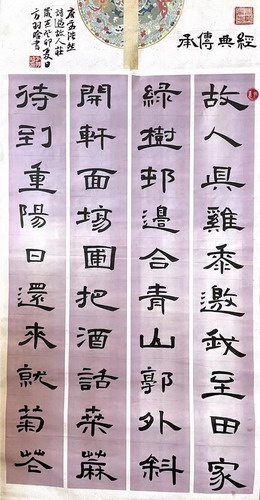 經典傳承
故人具雞黍邀我至田家
綠樹邨邊合青山郭外斜
開軒面場圃把酒話桒蔴
待到重陽日還來就菊花
唐孟浩然
詩過故人莊
歲在癸卯夏日
方羽書